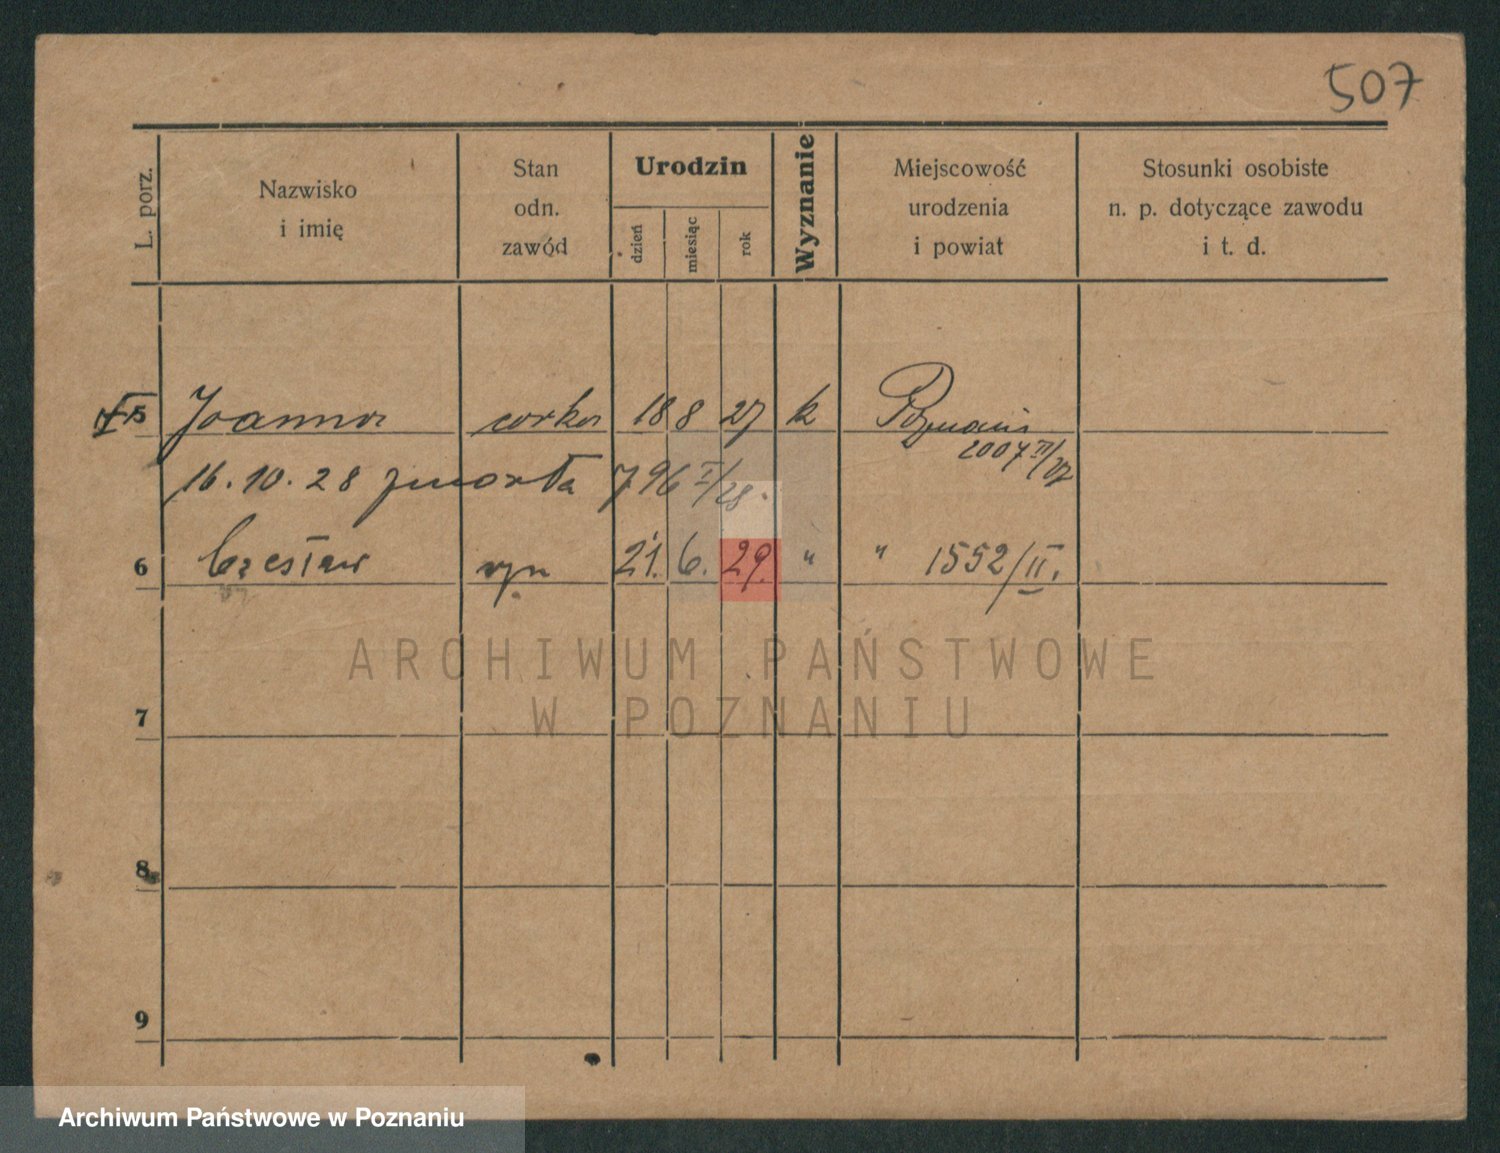 507
L. porz.
Nazwisko
i imię
Stan
odn.
zawód
Urodzin
dzień
miesiąc
rok
Wyznanie
Miejscowość
urodzenia
i powiat
Stosunki osobiste
n. p. dotyczące zawodu
i t. d.
5 Joanna corka 18 8 27 k Poznań
2007 III/27
16.10.28 zmarła 796 I/28.
6 Czesław syn 21. 6. 29. " " 1552/II.
ARCHIWUM PAŃSTWOWE
W POZNANIU
7
8
9
Archiwum Państwowe w Poznaniu